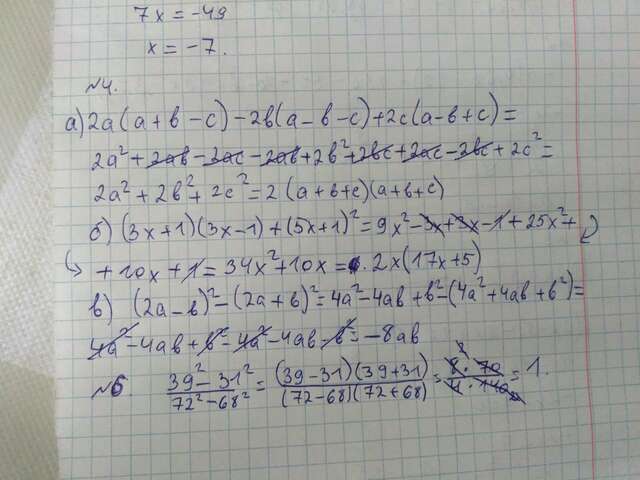 7x = -49
x = -7.
№4.
а) 2a(a+b-c)-2b(a-b-c)+2c(a-b+c)=
2a²+2ab-2ac-2ab+2b²+2bc+2ac-2bc+2c²=
2a²+2b²+2c²=2(a+b+c)(a+b+c)
б) (3x+1)(3x-1)+(5x+1)²=9x²-3x+3x-1+25x²+
+10x+1=34x²+10x=2x(17x+5)
в) (2a-b)²-(2a+b)²=4a²-4ab+b²-(4a²+4ab+b²)=
4a²-4ab+b²-4a²-4ab-b²=-8ab
№6. (39²-31²)/(72²-68²)=((39-31)(39+31))/((72-68)(72+68))=(8·70)/(4·140)=1.